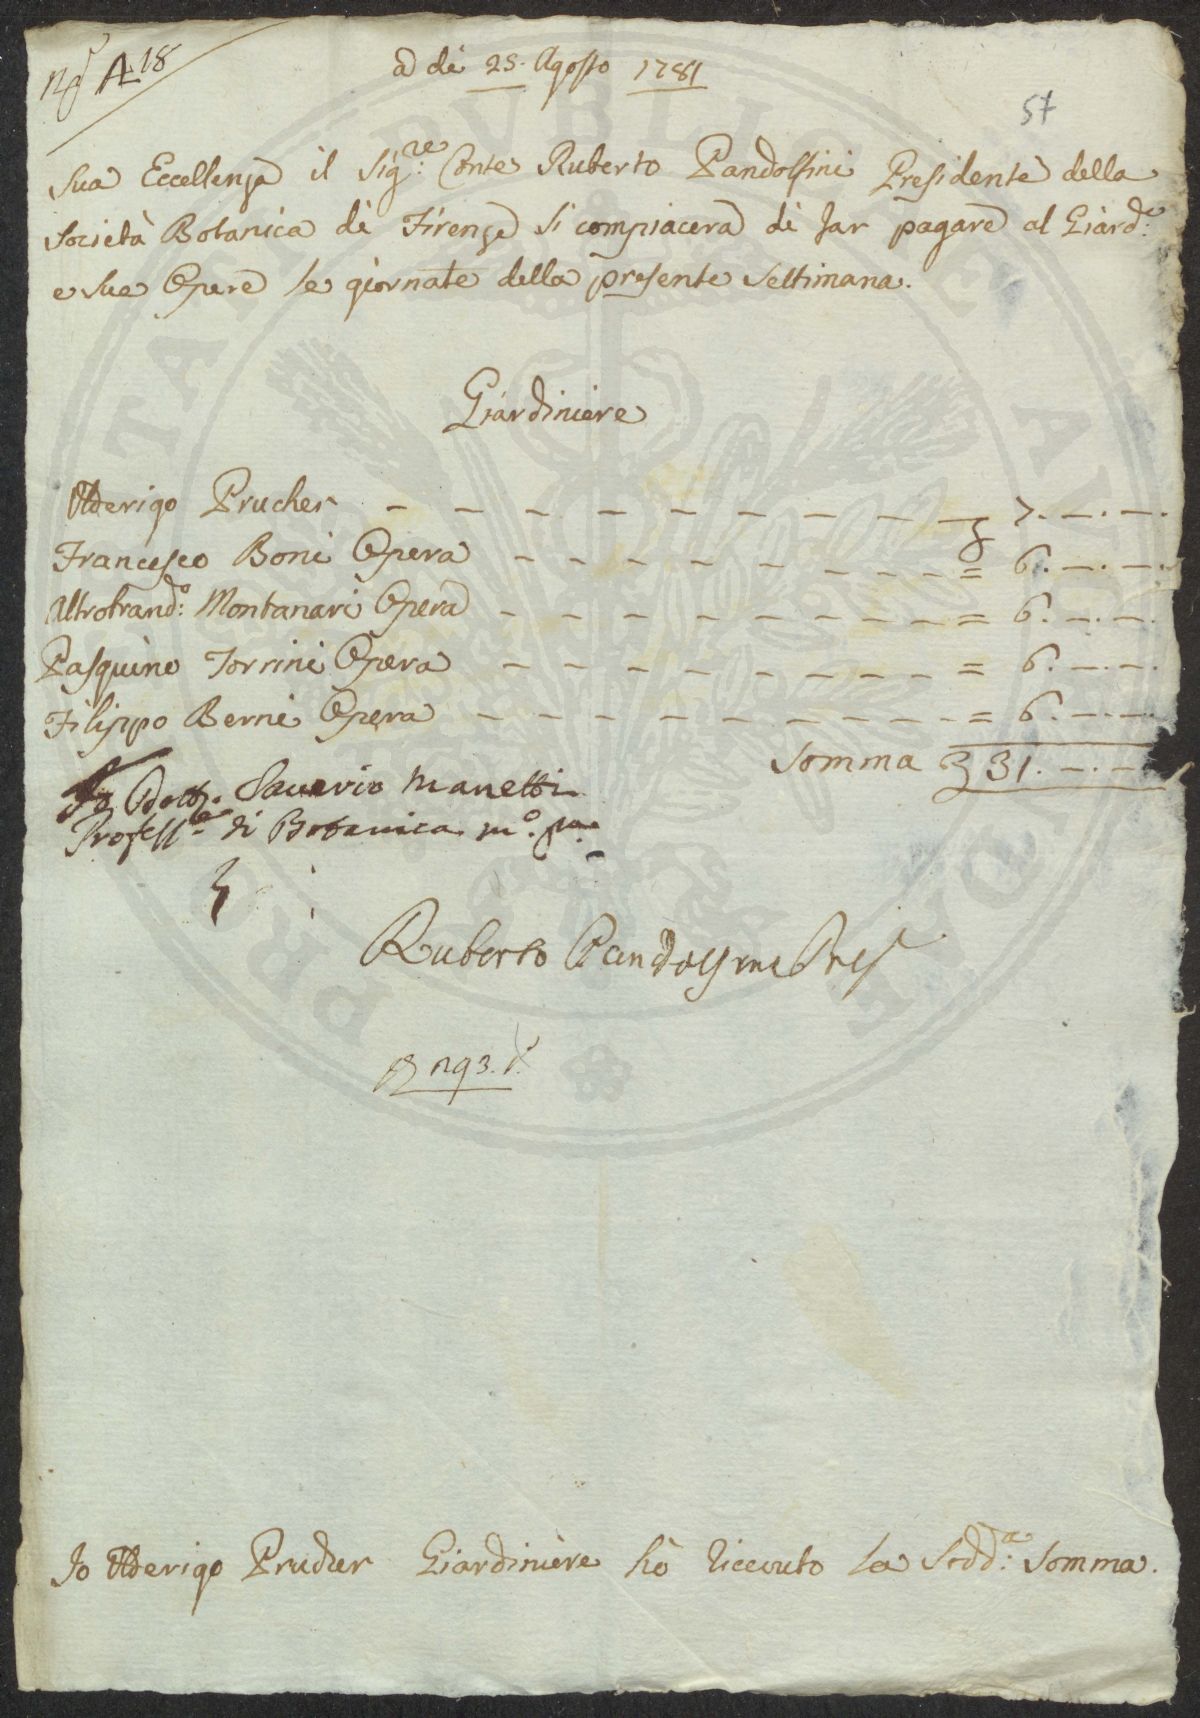 N.° A 18
a di 25. Agosto 1781
57
Sua Eccellenza il Sig.re Conte Ruberto Pandolfini Presidente della
Società Botanica di Firenze si compiacerà di far pagare al Giard.e
e sue Opere le giornate della presente Settimana.
Giardiniere
Ulderigo Prucher - - - - - - - - - 7. —. —.
Francesco Boni Opera - - - - - - - - = 6. —. —.
Altobrand.o: Montanari Opera - - - - - - - - = 6. —. —.
Pasquino Torrini Opera - - - - - - - - = 6. —. —.
Filippo Berni Opera - - - - - - - - - = 6. —. —.
Somma 31. —. —
Io Dott. Saverio Manetti
Profess.re di Botanica m.o pa
Ruberto Pandolfini Pres
Io Ulderigo Prucher Giardiniere hò riceuto la Sodd.a: Somma.
PRO PVBLICA